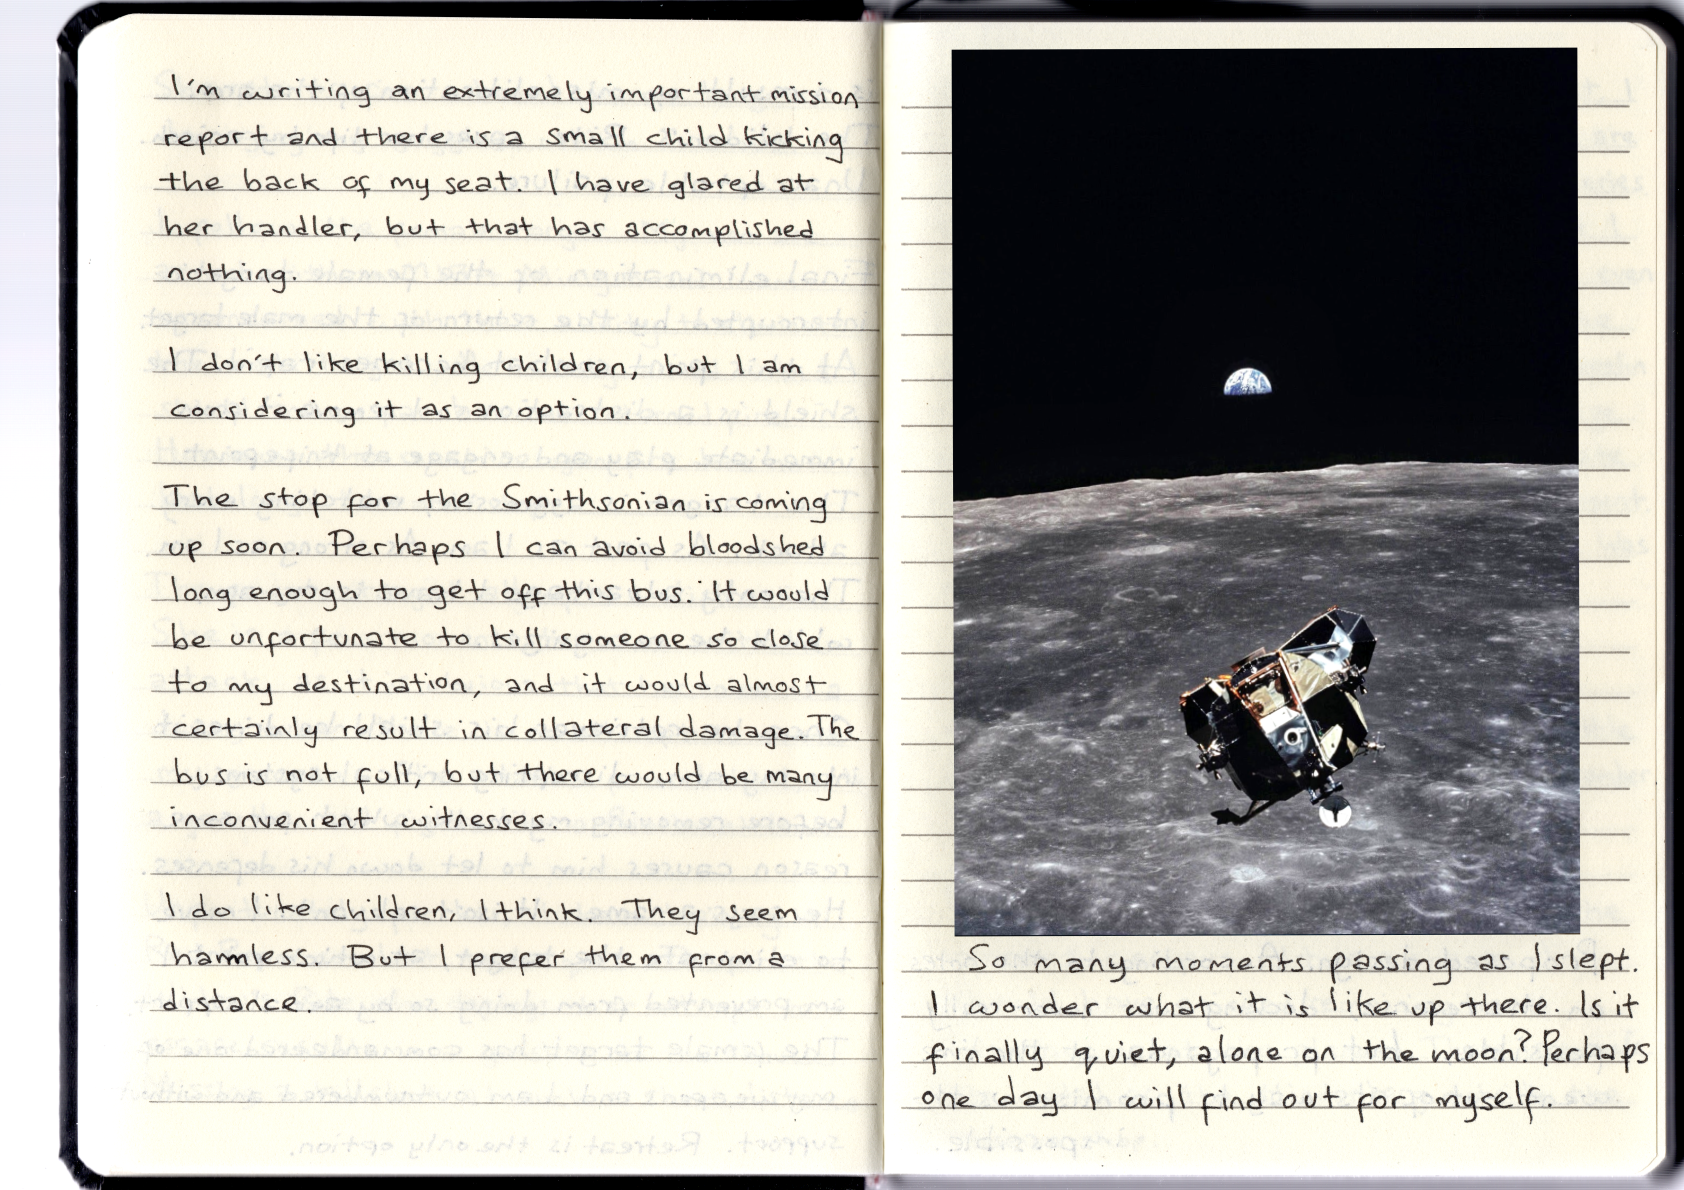 I'm writing an extremely important mission
report and there is a small child kicking
the back of my seat. I have glared at
her handler, but that has accomplished
nothing.
I don't like killing children, but I am
considering it as an option.
The stop for the Smithsonian is coming
up soon. Perhaps I can avoid bloodshed
long enough to get off this bus. It would
be unfortunate to kill someone so close
to my destination, and it would almost
certainly result in collateral damage. The
bus is not full, but there would be many
inconvenient witnesses.
I do like children, I think. They seem
harmless. But I prefer them from a
distance.
So many moments passing as I slept.
I wonder what it is like up there. Is it
finally quiet, alone on the moon? Perhaps
one day I will find out for myself.